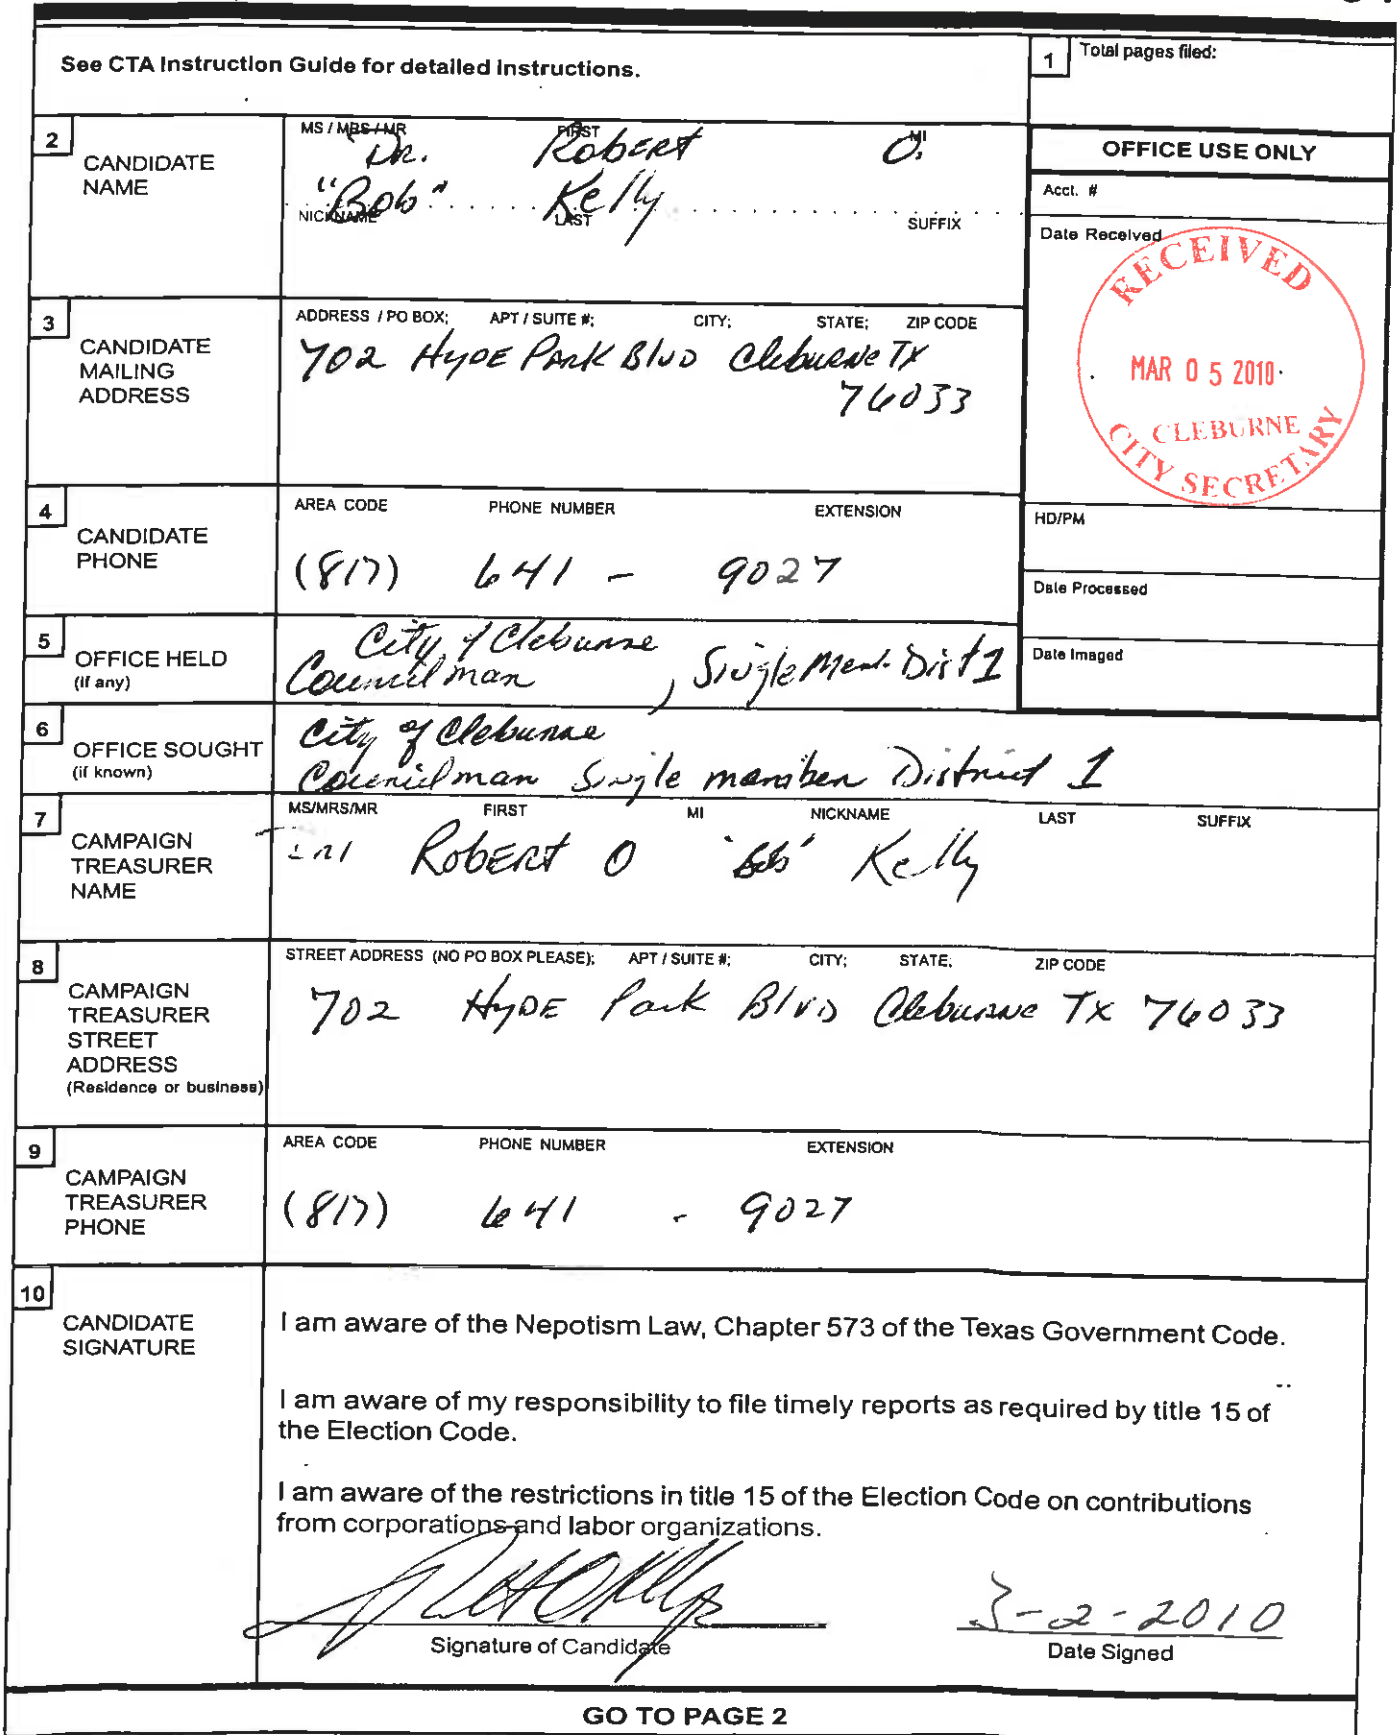 See CTA Instruction Guide for detailed instructions.
1 Total pages filed:
2 CANDIDATE NAME
MS / MRS / MR FIRST MI
Dr. Robert O.
"Bob" Kelly
NICKNAME LAST SUFFIX
OFFICE USE ONLY
Acct. #
Date Received
RECEIVED
MAR 05 2010
CLEBURNE
CITY SECRETARY
3 CANDIDATE MAILING ADDRESS
ADDRESS / PO BOX; APT / SUITE #; CITY; STATE; ZIP CODE
702 Hyde Park Blvd Cleburne TX
76033
4 CANDIDATE PHONE
AREA CODE PHONE NUMBER EXTENSION
(817) 641 - 9027
HD/PM
Date Processed
Date Imaged
5 OFFICE HELD (if any)
City of Cleburne
Councilman, Single Mem. Dist 1
6 OFFICE SOUGHT (if known)
City of Cleburne
Councilman Single member District 1
7 CAMPAIGN TREASURER NAME
MS/MRS/MR FIRST MI NICKNAME LAST SUFFIX
Robert O 'Bob' Kelly
8 CAMPAIGN TREASURER STREET ADDRESS (Residence or business)
STREET ADDRESS (NO PO BOX PLEASE); APT / SUITE #; CITY; STATE; ZIP CODE
702 Hyde Park Blvd Cleburne TX 76033
9 CAMPAIGN TREASURER PHONE
AREA CODE PHONE NUMBER EXTENSION
(817) 641 - 9027
10 CANDIDATE SIGNATURE
I am aware of the Nepotism Law, Chapter 573 of the Texas Government Code.
I am aware of my responsibility to file timely reports as required by title 15 of
the Election Code.
I am aware of the restrictions in title 15 of the Election Code on contributions
from corporations and labor organizations.
3-2-2010
Signature of Candidate Date Signed
GO TO PAGE 2